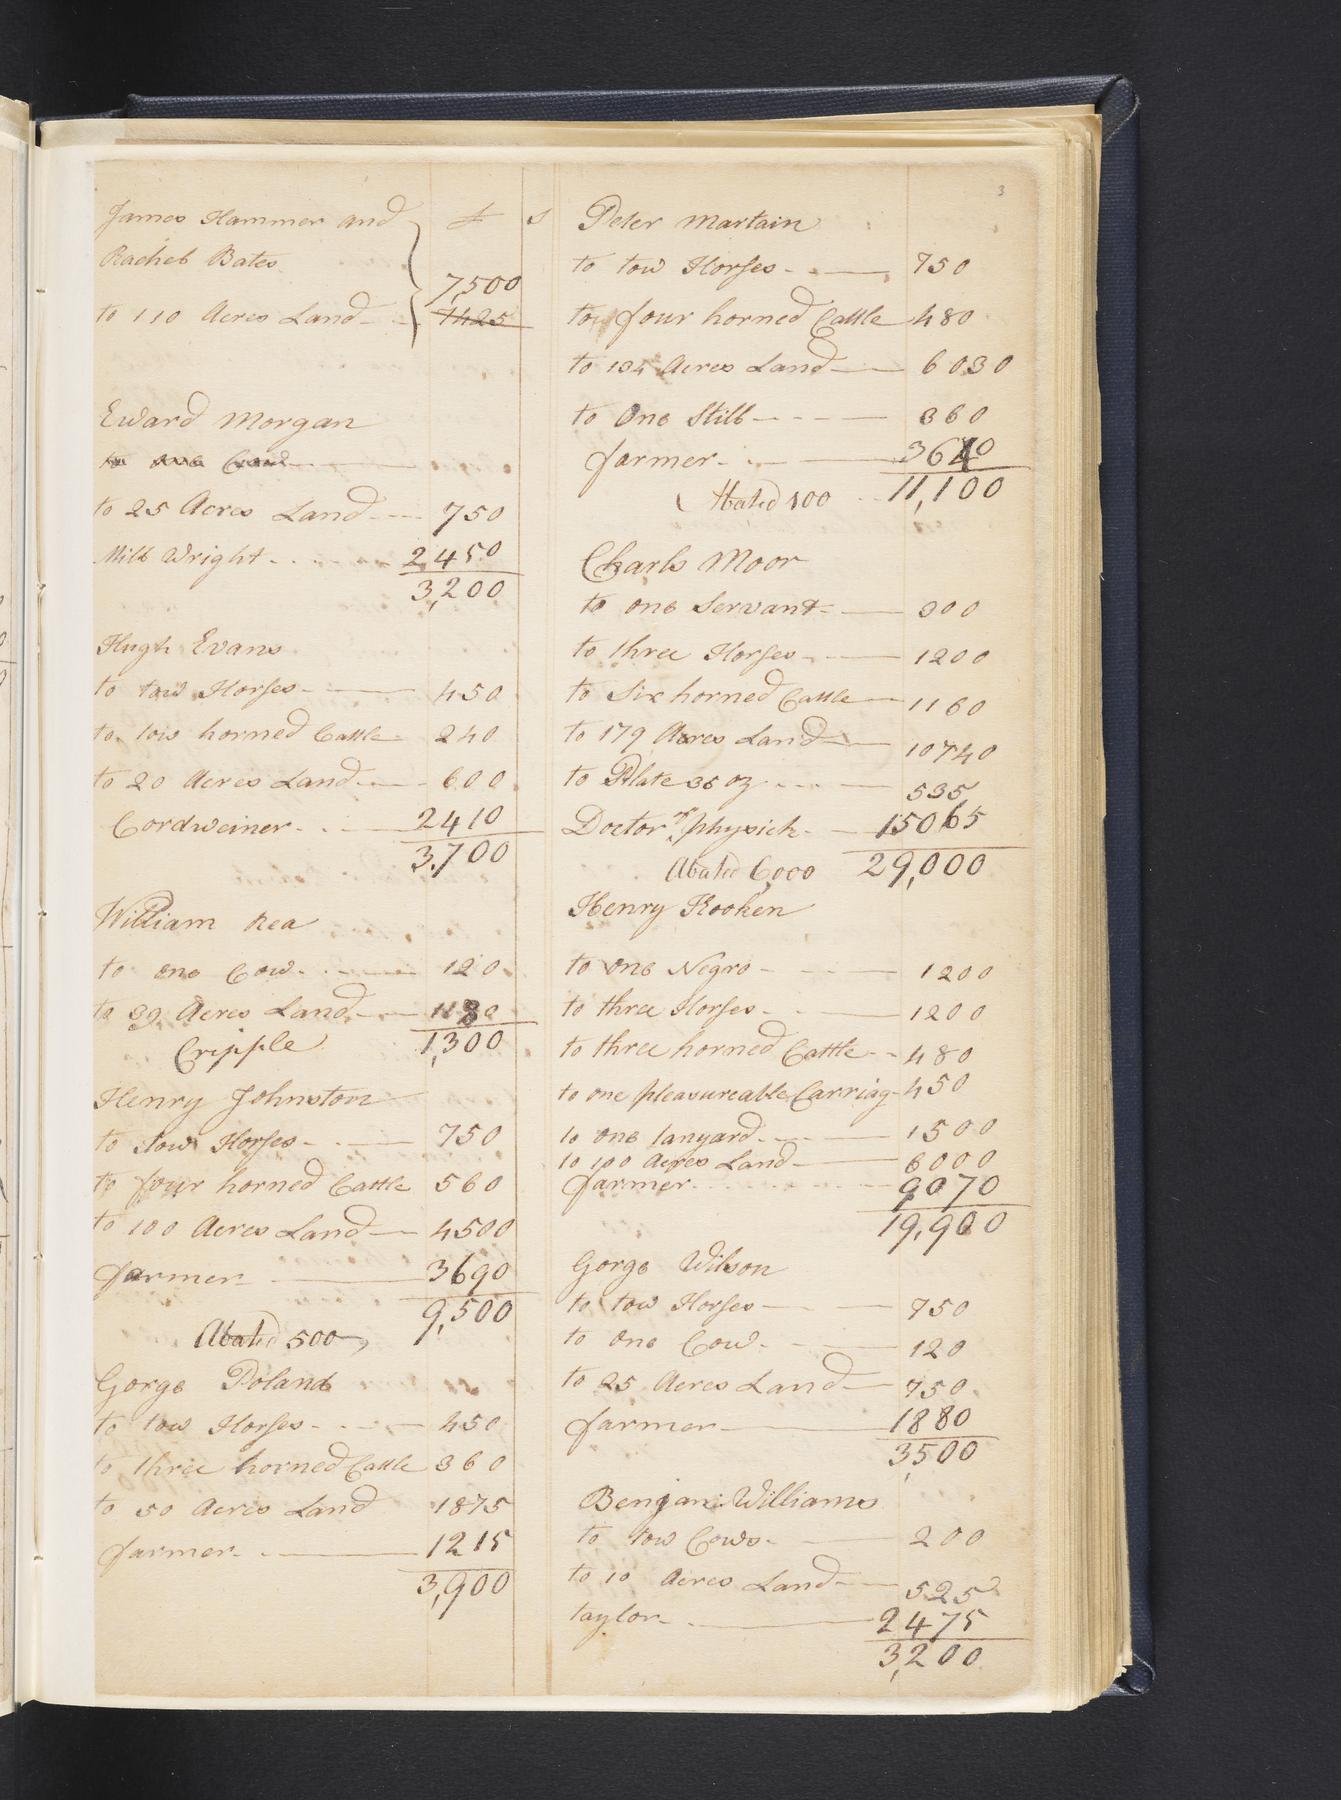 3
James Hammer and £ s
Rachel Bates
7,500
to 110 Acres Land 7425
Eward Morgan
to one Cow
to 25 Acres Land 750
Mill Wright 2450
3,200
Hugh Evans
to tow Horses 450
to tow horned Cattle 240
to 20 Acres Land 600
Cordweiner 2410
3,700
William Rea
to one Cow 120
to 39 Acres Land 1180
Cripple 1,300
Henry Johnston
to tow Horses 750
to four horned Cattle 560
to 100 Acres Land 4500
farmer 3690
9,500
Abated 500
Gorge Poland
to tow Horses 450
to three horned Cattle 360
to 50 Acres Land 1875
farmer 1215
3,900
Peter Martain
to tow Horses 750
to four horned Cattle 480
to 134 Acres Land 6030
to One Still 360
farmer
Abated 400 11,100
Charls Moor
to one Servant 300
to three Horses 1200
to Six horned Cattle 1160
to 179 Acres Land 10740
to Plate 35 oz 535
Doctor physick 15065
Abated 6,000 29,000
Henry Kooken
to one Negro 1200
to three Horses 1200
to three horned Cattle 480
to one pleasureable Carriag 450
to one tanyard 1500
to 100 Acres Land 6000
farmer 9070
19,900
Gorge Wilson
to tow Horses 750
to one Cow 120
to 25 Acres Land 750
farmer 1880
3,500
Benjani Williams
to tow Cows 200
to 10 Acres Land 525
taylor 2475
3,200